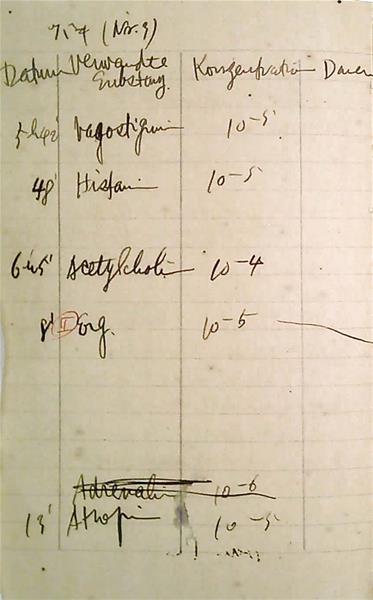 (Nr. 9)
Datum Verwendte Substanz Konzentration Dauer
Vagostigmin 10-5
48' Histamin 10-5
6h45' Acetylcholin 10-4
8' I Org. 10-5
Adrenalin 10-6
13' Atropin 10-5